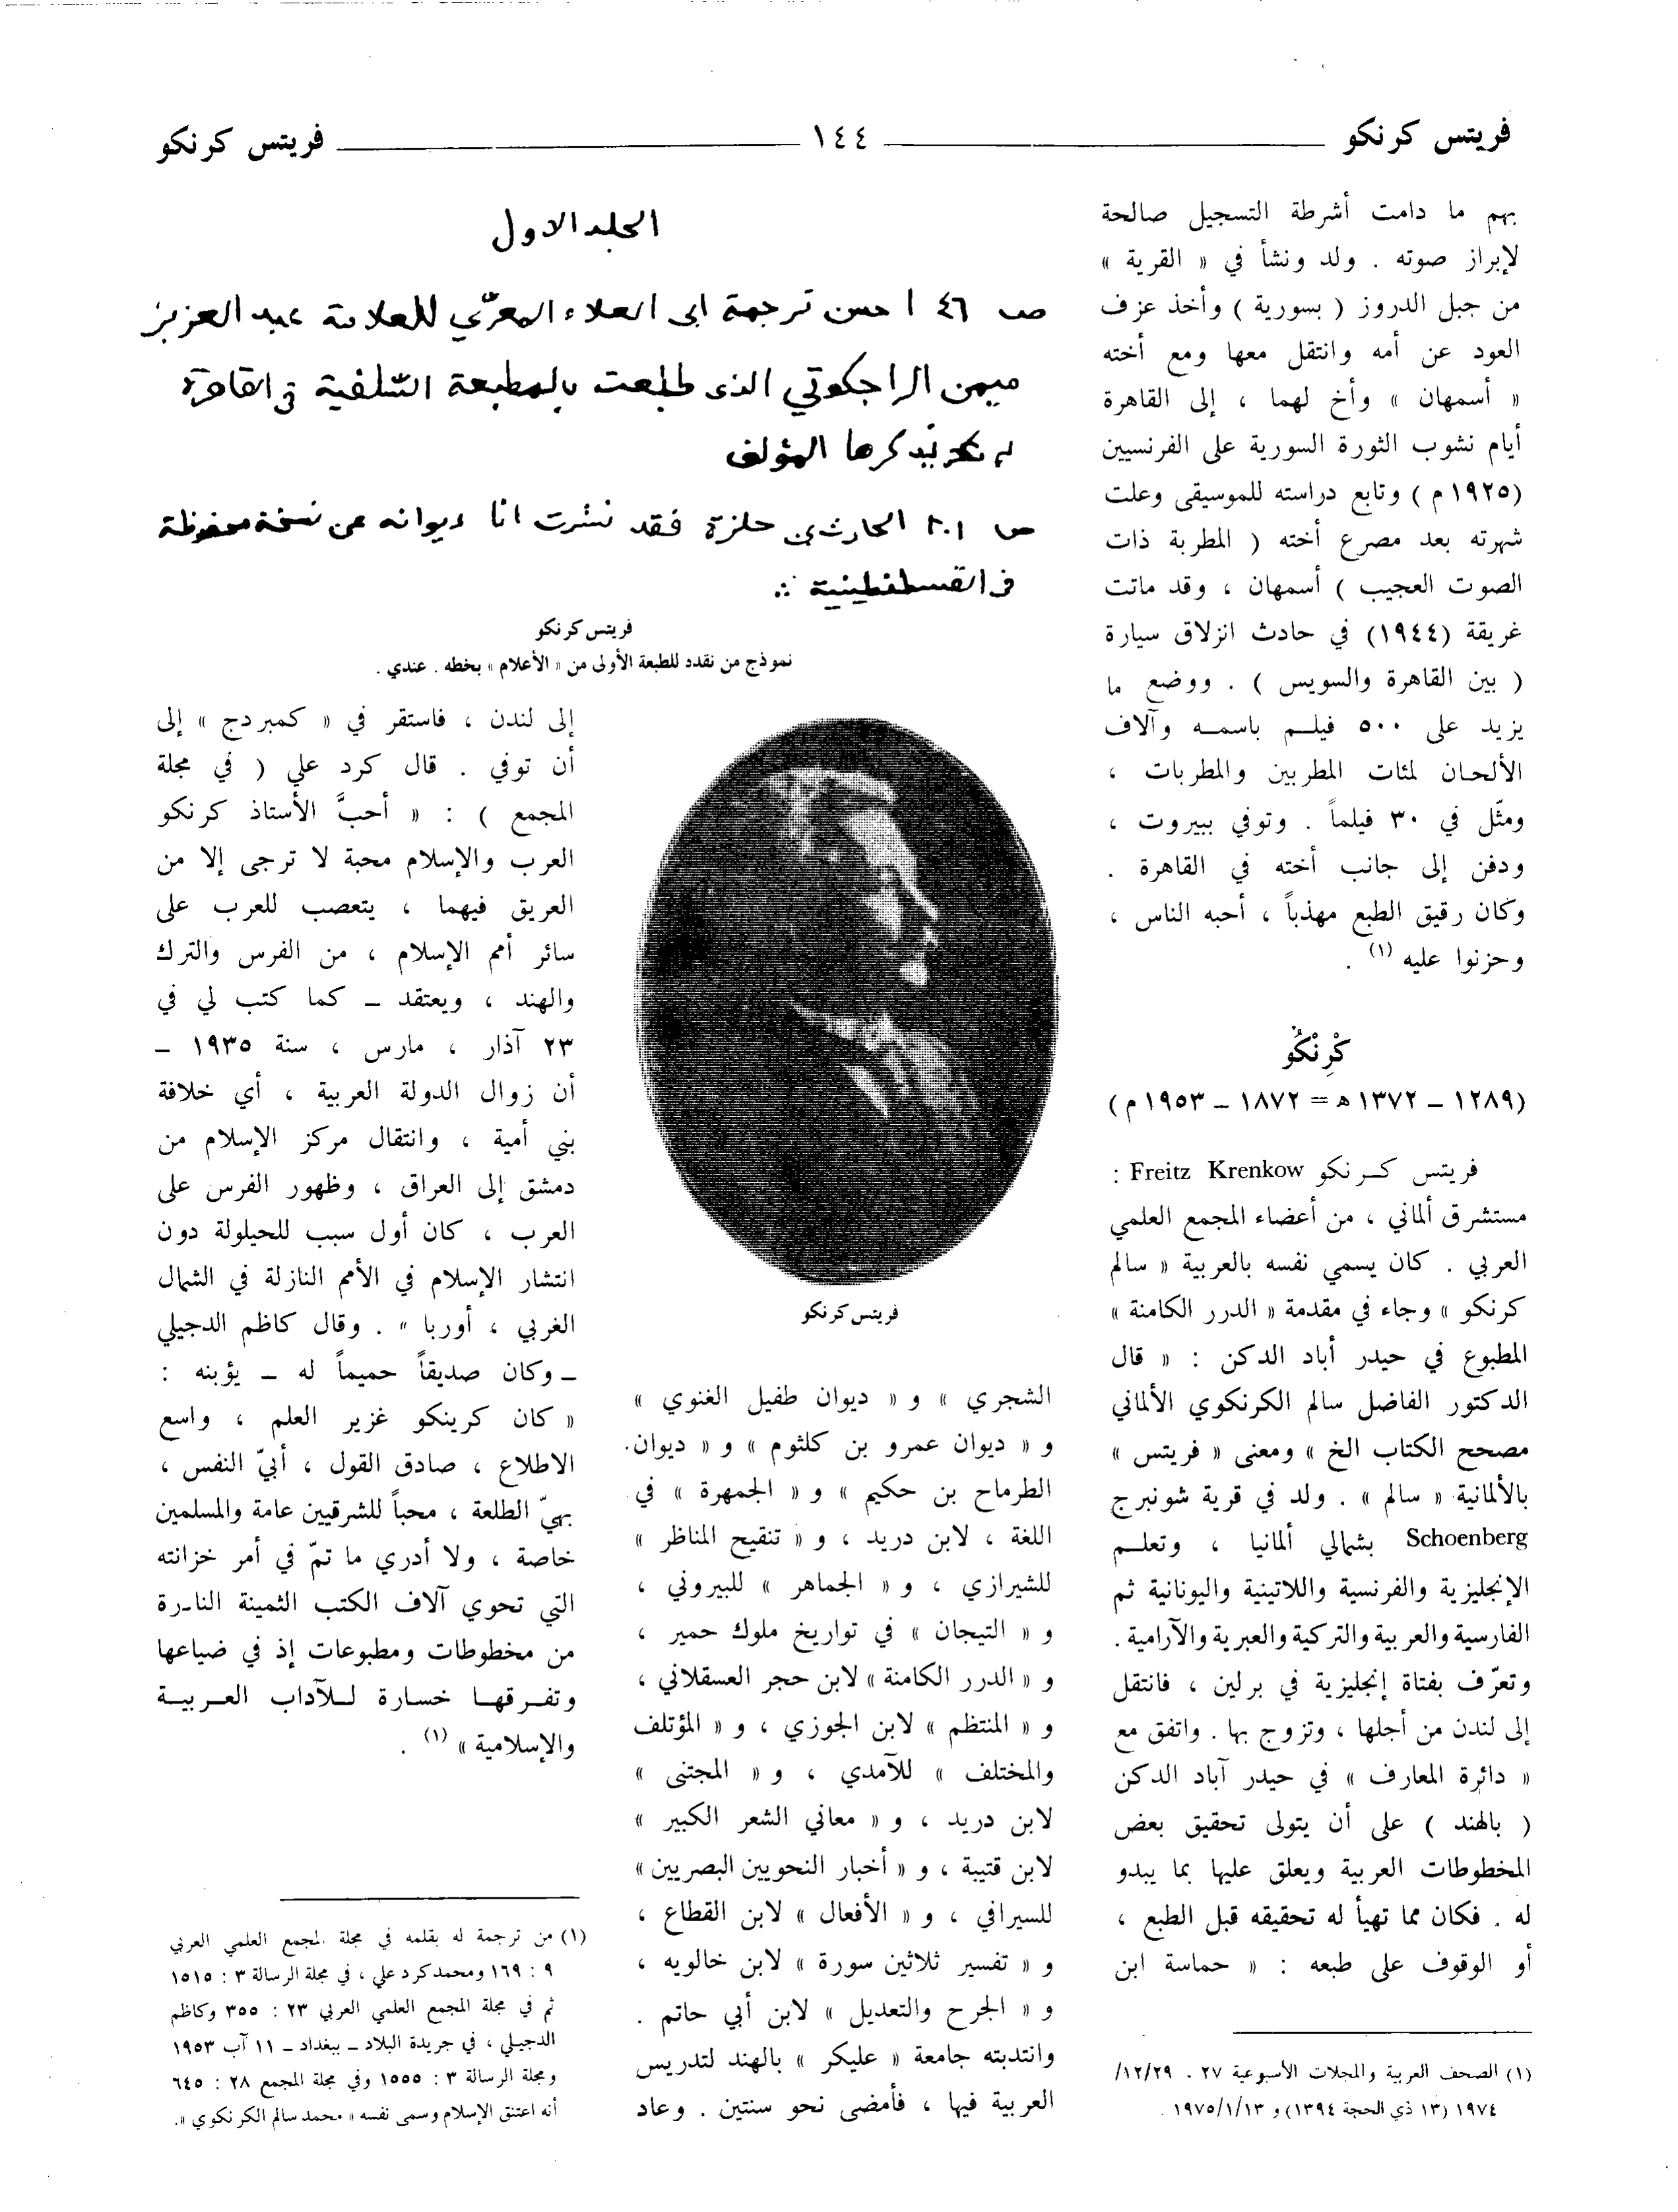 فريتس كرنكو ١٤٤ فريتس كرنكو
بهم ما دامت أشرطة التسجيل صالحة
لإبراز صوته . ولد ونشأ في « القرية »
من جبل الدروز ( بسورية ) وأخذ عزف
العود عن أمه وانتقل معها ومع أخته
« أسمهان » وأخ لهما ، إلى القاهرة
أيام نشوب الثورة السورية على الفرنسيين
(١٩٢٥ م ) وتابع دراسته للموسيقى وعلت
شهرته بعد مصرع أخته ( المطربة ذات
الصوت العجيب ) أسمهان ، وقد ماتت
غريقة (١٩٤٤) في حادث انزلاق سيارة
( بين القاهرة والسويس ) . ووضع ما
يزيد على ٥٠٠ فيلم باسمه وآلاف
الألحان لمئات المطربين والمطربات ،
ومثّل في ٣٠ فيلماً . وتوفي ببيروت ،
ودفن إلى جانب أخته في القاهرة .
وكان رقيق الطبع مهذباً ، أحبه الناس ،
وحزنوا عليه (١) .
كْرِنْكُو
(١٢٨٩ – ١٣٧٢ هـ = ١٨٧٢ – ١٩٥٣ م )
فريتس كرنكو Freitz Krenkow :
مستشرق ألماني ، من أعضاء المجمع العلمي
العربي . كان يسمي نفسه بالعربية « سالم
كرنكو » وجاء في مقدمة « الدرر الكامنة »
المطبوع في حيدر أباد الدكن : « قال
الدكتور الفاضل سالم الكرنكوي الألماني
مصحح الكتاب الخ » ومعنى « فريتس »
بالألمانية « سالم » . ولد في قرية شونبرج
Schoenberg بشمالي ألمانيا ، وتعلم
الإنجليزية والفرنسية واللاتينية واليونانية ثم
الفارسية والعربية والتركية والعبرية والآرامية .
وتعرّف بفتاة إنجليزية في برلين ، فانتقل
إلى لندن من أجلها ، وتزوج بها . واتفق مع
« دائرة المعارف » في حيدر آباد الدكن
( بالهند ) على أن يتولى تحقيق بعض
المخطوطات العربية ويعلق عليها بما يبدو
له . فكان مما تهيأ له تحقيقه قبل الطبع ،
أو الوقوف على طبعه : « حماسة ابن
(١) الصحف العربية والمجلات الأسبوعية ٢٧ . ١٢/٢٩/
١٩٧٤ (١٣ ذي الحجة ١٣٩٤) و ١٩٧٥/١/١٣ .
الجلد الاول
ص ٤٦ احسن ترجمة ابى العلاء المعرّي للعلامة عبد العزيز
ميمن الراجكوتي الذى طبعت بالمطبعة السّلفية في القاهرة
لم يذكرها المؤلف
ص ٢٠١ الحارث بن حلزة فقد نشرت انا ديوانه عن نسخة محفوظة
في القسطنطينية ∴
فريتس كرنكو
نموذج من نقده للطبعة الأولى من « الأعلام » بخطه . عندي .
فريتس كرنكو
الشجري » و « ديوان طفيل الغنوي »
و « ديوان عمرو بن كلثوم » و « ديوان
الطرماح بن حكيم » و « الجمهرة » في
اللغة ، لابن دريد ، و « تنقيح المناظر »
للشيرازي ، و « الجماهر » للبيروني ،
و « التيجان » في تواريخ ملوك حمير ،
و « الدرر الكامنة » لابن حجر العسقلاني ،
و « المنتظم » لابن الجوزي ، و « المؤتلف
والمختلف » للآمدي ، و « المجتنى »
لابن دريد ، و « معاني الشعر الكبير »
لابن قتيبة ، و « أخبار النحويين البصريين »
للسيرافي ، و « الأفعال » لابن القطاع ،
و « تفسير ثلاثين سورة » لابن خالويه ،
و « الجرح والتعديل » لابن أبي حاتم .
وانتدبته جامعة « عليكر » بالهند لتدريس
العربية فيها ، فأمضى نحو سنتين . وعاد
إلى لندن ، فاستقر في « كمبردج » إلى
أن توفي . قال كرد علي ( في مجلة
المجمع ) : « أحبَّ الأستاذ كرنكو
العرب والإسلام محبة لا ترجى إلا من
العريق فيهما ، يتعصب للعرب على
سائر أمم الإسلام ، من الفرس والترك
والهند ، ويعتقد – كما كتب لي في
٢٣ آذار ، مارس ، سنة ١٩٣٥ –
أن زوال الدولة العربية ، أي خلافة
بني أمية ، وانتقال مركز الإسلام من
دمشق إلى العراق ، وظهور الفرس على
العرب ، كان أول سبب للحيلولة دون
انتشار الإسلام في الأمم النازلة في الشمال
الغربي ، أوربا » . وقال كاظم الدجيلي
– وكان صديقاً حميماً له – يؤبنه :
« كان كرينكو غزير العلم ، واسع
الاطلاع ، صادق القول ، أبيّ النفس ،
بهيّ الطلعة ، محباً للشرقيين عامة والمسلمين
خاصة ، ولا أدري ما تمّ في أمر خزانته
التي تحوي آلاف الكتب الثمينة النادرة
من مخطوطات ومطبوعات إذ في ضياعها
وتفرقها خسارة للآداب العربية
والإسلامية » (١) .
(١) من ترجمة له بقلمه في مجلة المجمع العلمي العربي
٩ : ١٦٩ ومحمد كرد علي ، في مجلة الرسالة ٣ : ١٥١٥
ثم في مجلة المجمع العلمي العربي ٢٣ : ٣٥٥ وكاظم
الدجيلي ، في جريدة البلاد – ببغداد – ١١ آب ١٩٥٣
ومجلة الرسالة ٣ : ١٥٥٥ وفي مجلة المجمع ٢٨ : ٦٤٥
أنه اعتنق الإسلام وسمى نفسه « محمد سالم الكرنكوي ».